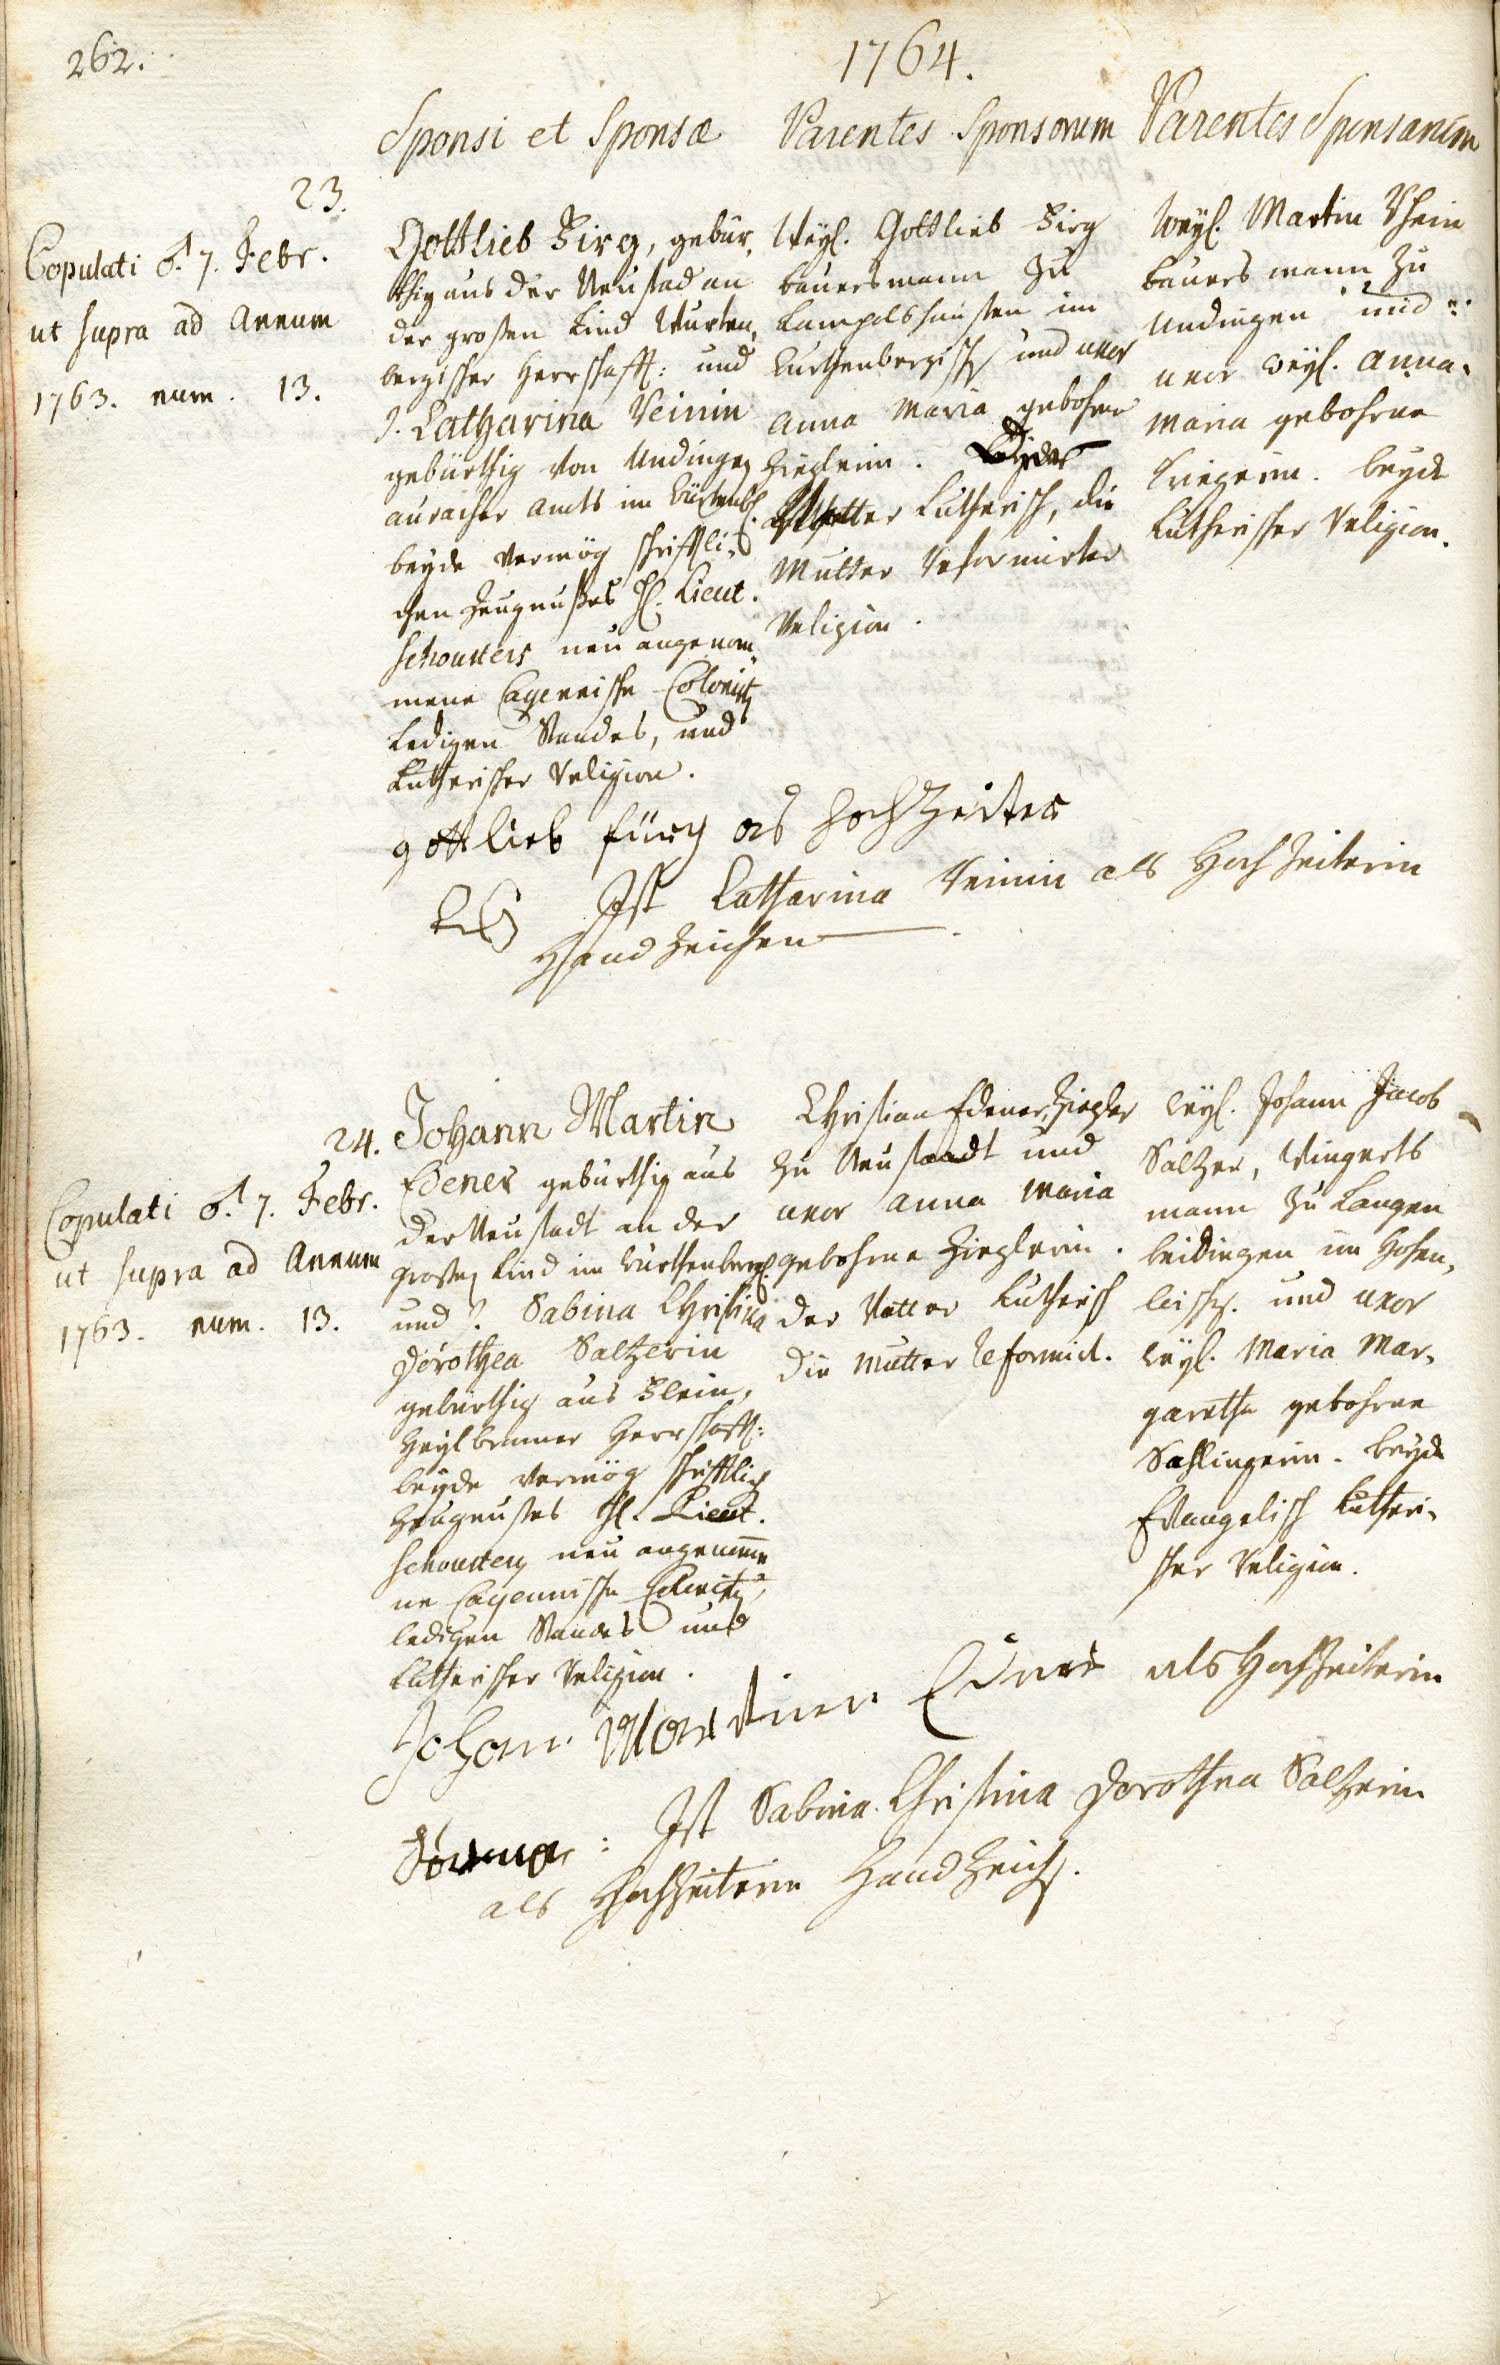 262.
1764.
Sponsi et Sponsæ
Parentes Sponsorum
Parentes Sponsarum
23.
Copulati ♂. 7. Febr.
ut supra ad Annum
1763. num. 13.
Gottlieb Firg, gebür,
thig aus der Neustad an
der großen Lind Würten,
bergischer Herrschafft: und
J. Catharina Reinin
gebürthig von Undingen
auracher Amts im Würtenb.
beyde vermög schrifftli,
chen Zeugnußes H. Lieut.
Schousters neu angenom,
mene Cayennische Colonisten
Ledigen Standes, und
Lutherischer Religion.
Weyl. Gottlieb Firg
bauersmann zu
Lampoldshausten im
Würthenbergisch und uxor
Anna Maria gebohrne
Zieglerin.
Vatter Lutherisch, die
Mutter Reformirter
Religion.
Weyl. Martin Rhein
bauers mann zu
Undingen und
uxor weyl. Anna
Maria gebohrne
Kriegerin. beyde
Lutherischer Religion.
gottlieb fürg als hochzeiter
Ist Catharina Reinin als Hochzeiterin
Handzeichen
24.
Copulati ♂. 7. Febr.
ut supra ad Annum
1763. num. 13.
Johann Martin
Edener gebürthig aus
der Neustadt an der
großen Lind im Würthenberg.
und J. Sabina Christina
Dorothea Saltzerin
gebürthig aus Flein,
Heylbronner Herrschafft:
beyde vermög schrifftlich
Zeugnußes H. Lieut.
Schousters neu angenomme
ne Cayennische Colonisten,
ledigen Standes und
Lutherischer Religion.
Christian Edener, Ziegler
zu Neustadt und
uxor Anna Maria
gebohrne Zieglerin.
der Vatter Lutherisch
die Mutter Reformirt.
Weyl. Johann Jacob
Saltzer, Wingerts
mann zu Langen
beidingen im Hohen,
loisch. und uxor
Weyl. Maria Mar,
garetha gebohrne
Sahlingerin. beyde
Evangelisch Lutheri,
scher Religion.
Johann Martin Edner als Hochzeiterin
: Ist Sabina Christina Dorothea Saltzerin
als Hochzeiterin Handzeich.